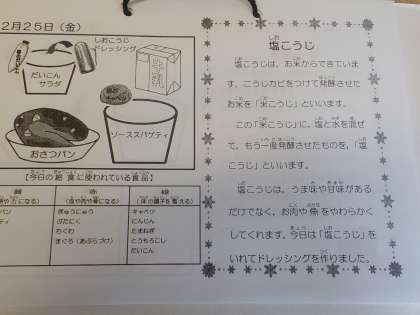 2月25日(金)
しおこうじ
ドレッシング
だいこん
サラダ
キャベツ
ソーススパゲティ
おさつパン
【今日の給食に使われている食品】
赤
緑
(血や肉や骨になる)
(体の調子を整える)
パン
ぎゅうにゅう
キャベツ
ティ
ぶたにく
にんじん
ちくわ
たまねぎ
まぐろ(あぶらづけ)
とうもろこし
だいこん
塩こうじ
塩こうじは、お米からできていま
す。こうじカビをつけて発酵させた
お米を「米こうじ」といいます。
この「米こうじ」に、塩と水を混ぜ
て、もう一度発酵させたものを、「塩
こうじ」といいます。
塩こうじは、うま味や甘味がある
だけでなく、お肉や魚をやわらかく
してくれます。今日は「塩こうじ」を
いれてドレッシングを作りました。